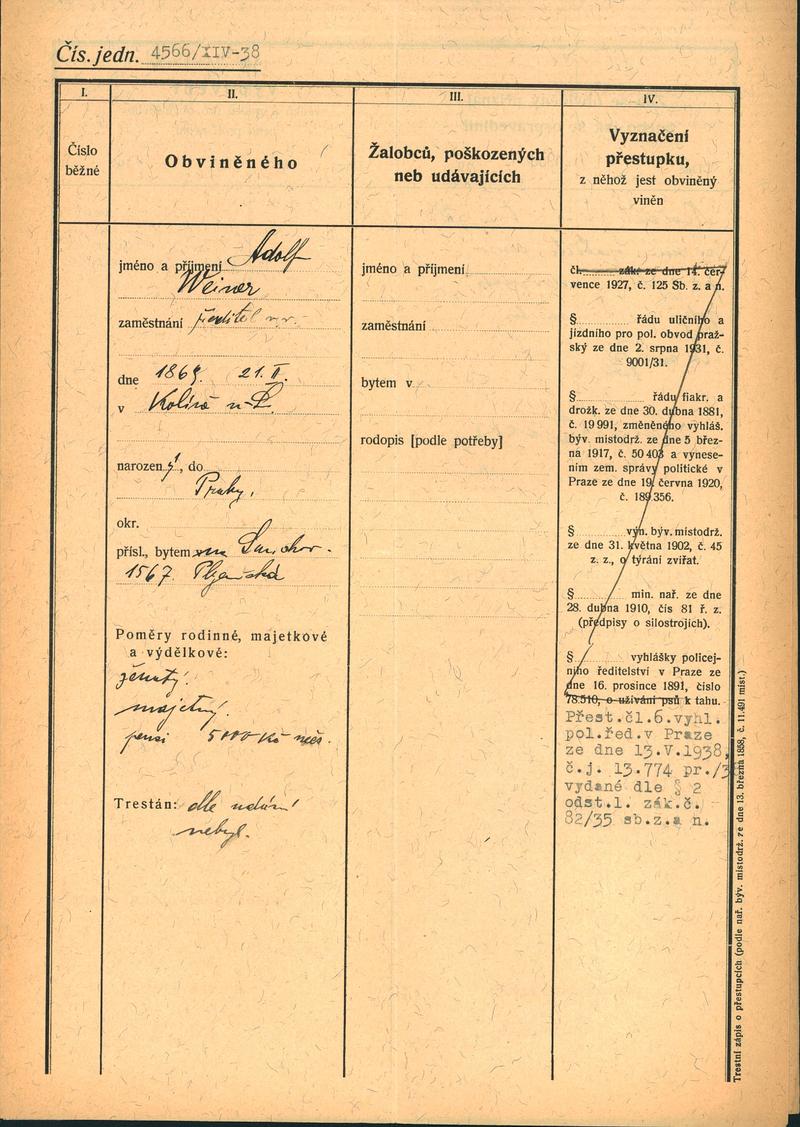 Čís. jedn. 4566/XIV-38
I.
II.
III.
IV.
Číslo
běžné
Obviněného
Žalobců, poškozených
neb udávajících
Vyznačení
přestupku,
z něhož jest obviněný
viněn
jméno a příjmení Adolf
Weiner
zaměstnání ředitel v.v.
dne 1869. 21.II.
v Kolíně n-L.
narozený, do
Prahy,
okr.
přísl., bytem Smíchov.
1567. Plzeňská
Poměry rodinné, majetkové
a výdělkové:
ženatý.
majetný.
pensi 5000 Kč měs.
Trestán: dle udání
nebyl.
jméno a příjmení
zaměstnání
bytem v
rodopis [podle potřeby]
čl. zák. ze dne 14. čer-
vence 1927, č. 125 Sb. z. a n.
§ řádu uličního a
jízdního pro pol. obvod praž-
ský ze dne 2. srpna 1931, č.
9001/31.
§ řádu fiakr. a
drožk. ze dne 30. dubna 1881,
č. 19 991, změněného vyhláš.
býv. místodrž. ze dne 5 břez-
na 1917, č. 50 403 a vynese-
ním zem. správy politické v
Praze ze dne 19. června 1920,
č. 189 356.
§ výn. býv. místodrž.
ze dne 31. května 1902, č. 45
z. z., o týrání zvířat.
§ min. nař. ze dne
28. dubna 1910, čís 81 ř. z.
(předpisy o silostrojích).
§ vyhlášky policej-
ního ředitelství v Praze ze
dne 16. prosince 1891, číslo
78.510, o užívání psů k tahu.
Přest.čl.6.vyhl.
pol.řed.v Praze
ze dne 13.V.1938,
č.j. 13.774 pr./3
vydané dle § 2
odst.1. zák.č.
82/35 sb.z.a n.
Trestní zápis o přestupcích (podle nař. býv. místodrž. ze dne 13. března 1858, č. 11.491 míst.)